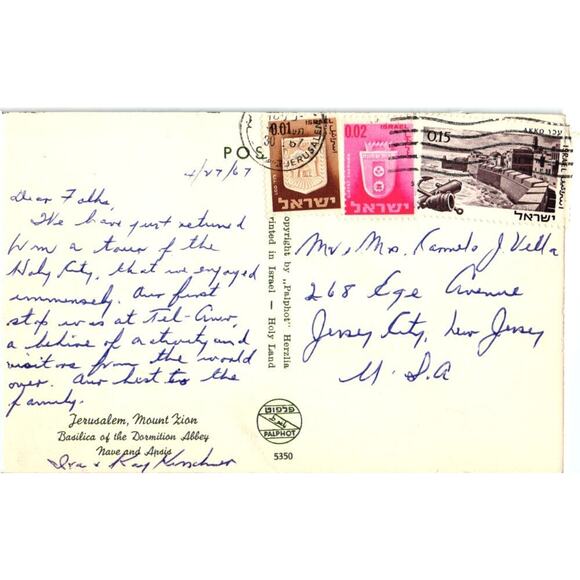 POS
4/27/67
Dear Folks,
We have just returned
from a tour of the
Holy City, that we enjoyed
immensely. Our first
stop was at Tel-Aviv,
a behive of activity and
visitors from the world
over. Our best to the
family.
Jerusalem, Mount Zion
Basilica of the Dormition Abbey
Nave and Apsis
Ira & Ray Kirschner
opyright by „Palphot" Herzlia
rinted in Israel — Holy Land
פלפוט
PALPHOT
5350
JERUSALEM
0.01
ISRAEL
ישראל
0.02
ISRAEL
ישראל
0.15
AKKO עכו
ISRAEL
ישראל
Mr & Mrs. Carmelo J. Villa
268 Ege Avenue
Jersey City, New Jersey
U.S.A